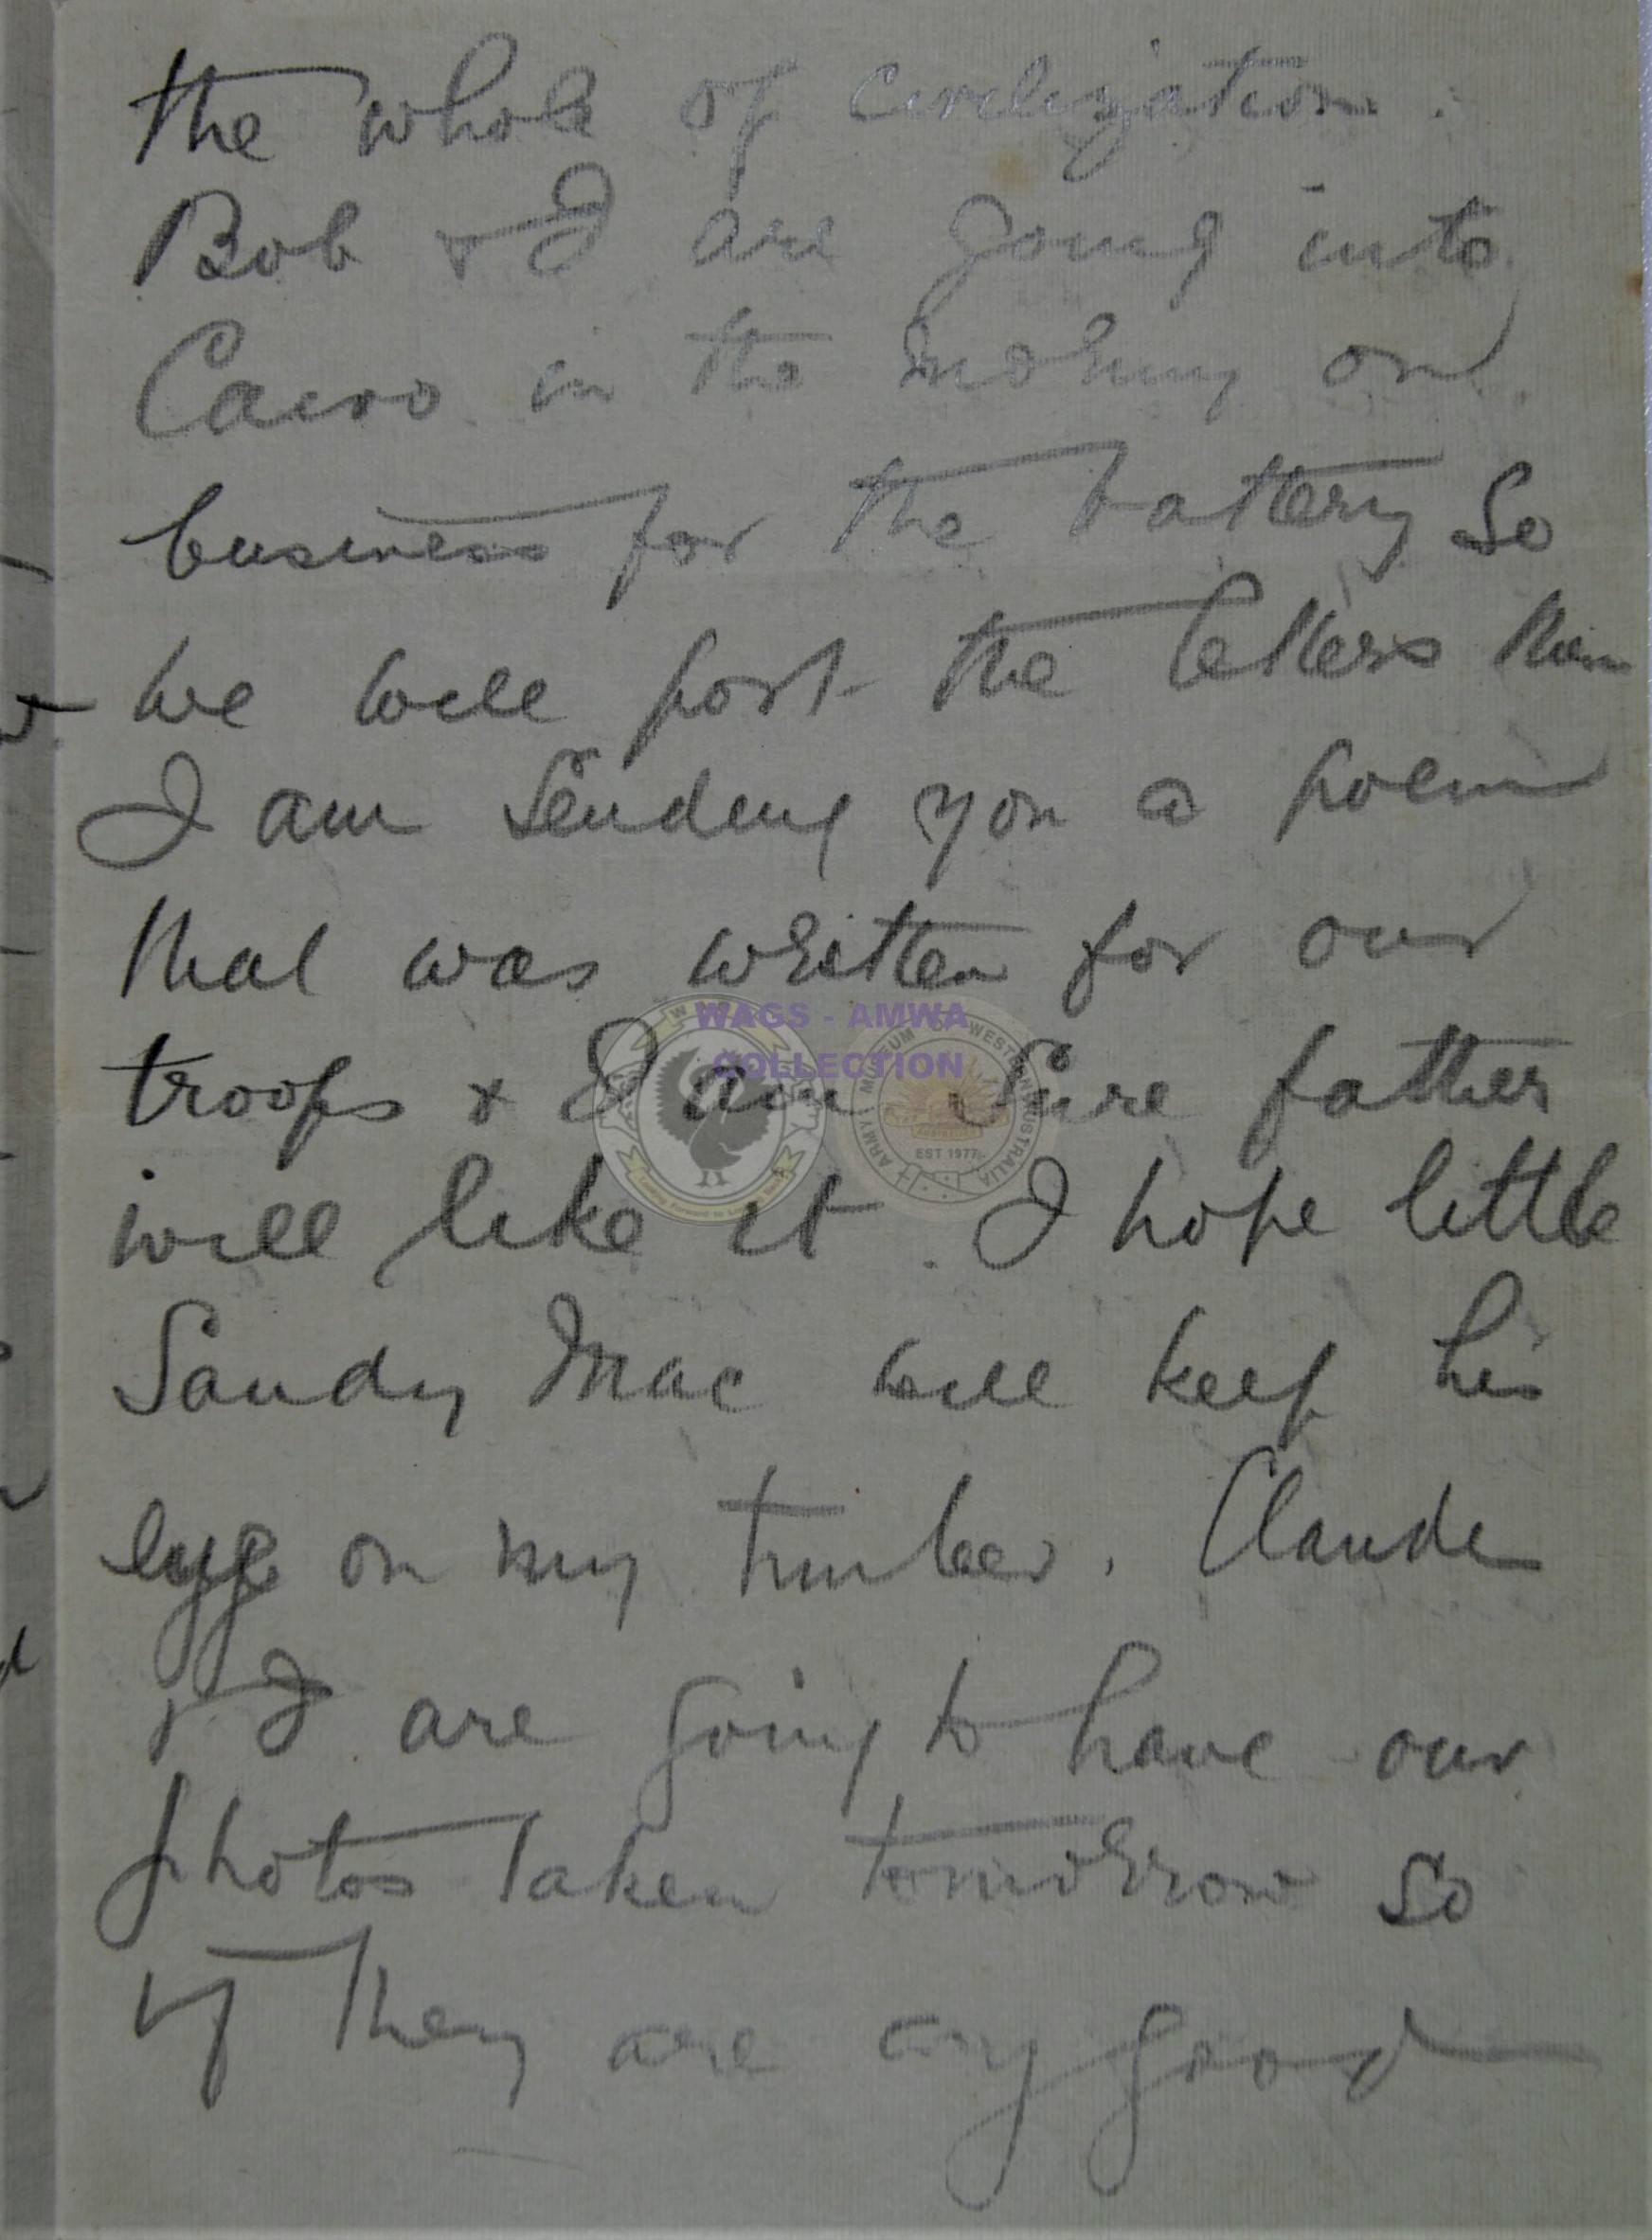 the whole of civilization.
Bob & I are going into
Cairo in the morning on
business for the battery so
we will post the letters then
I am sending you a poem
that was written for our
troops & I am sure father
will like it. I hope little
Sandy Mac will keep his
eye on my timber. Claude
& I are going to have our
photos taken tomorrow so
if they are any good
WAGS - AMWA
COLLECTION
ARMY MUSEUM OF WESTERN AUSTRALIA
EST 1977